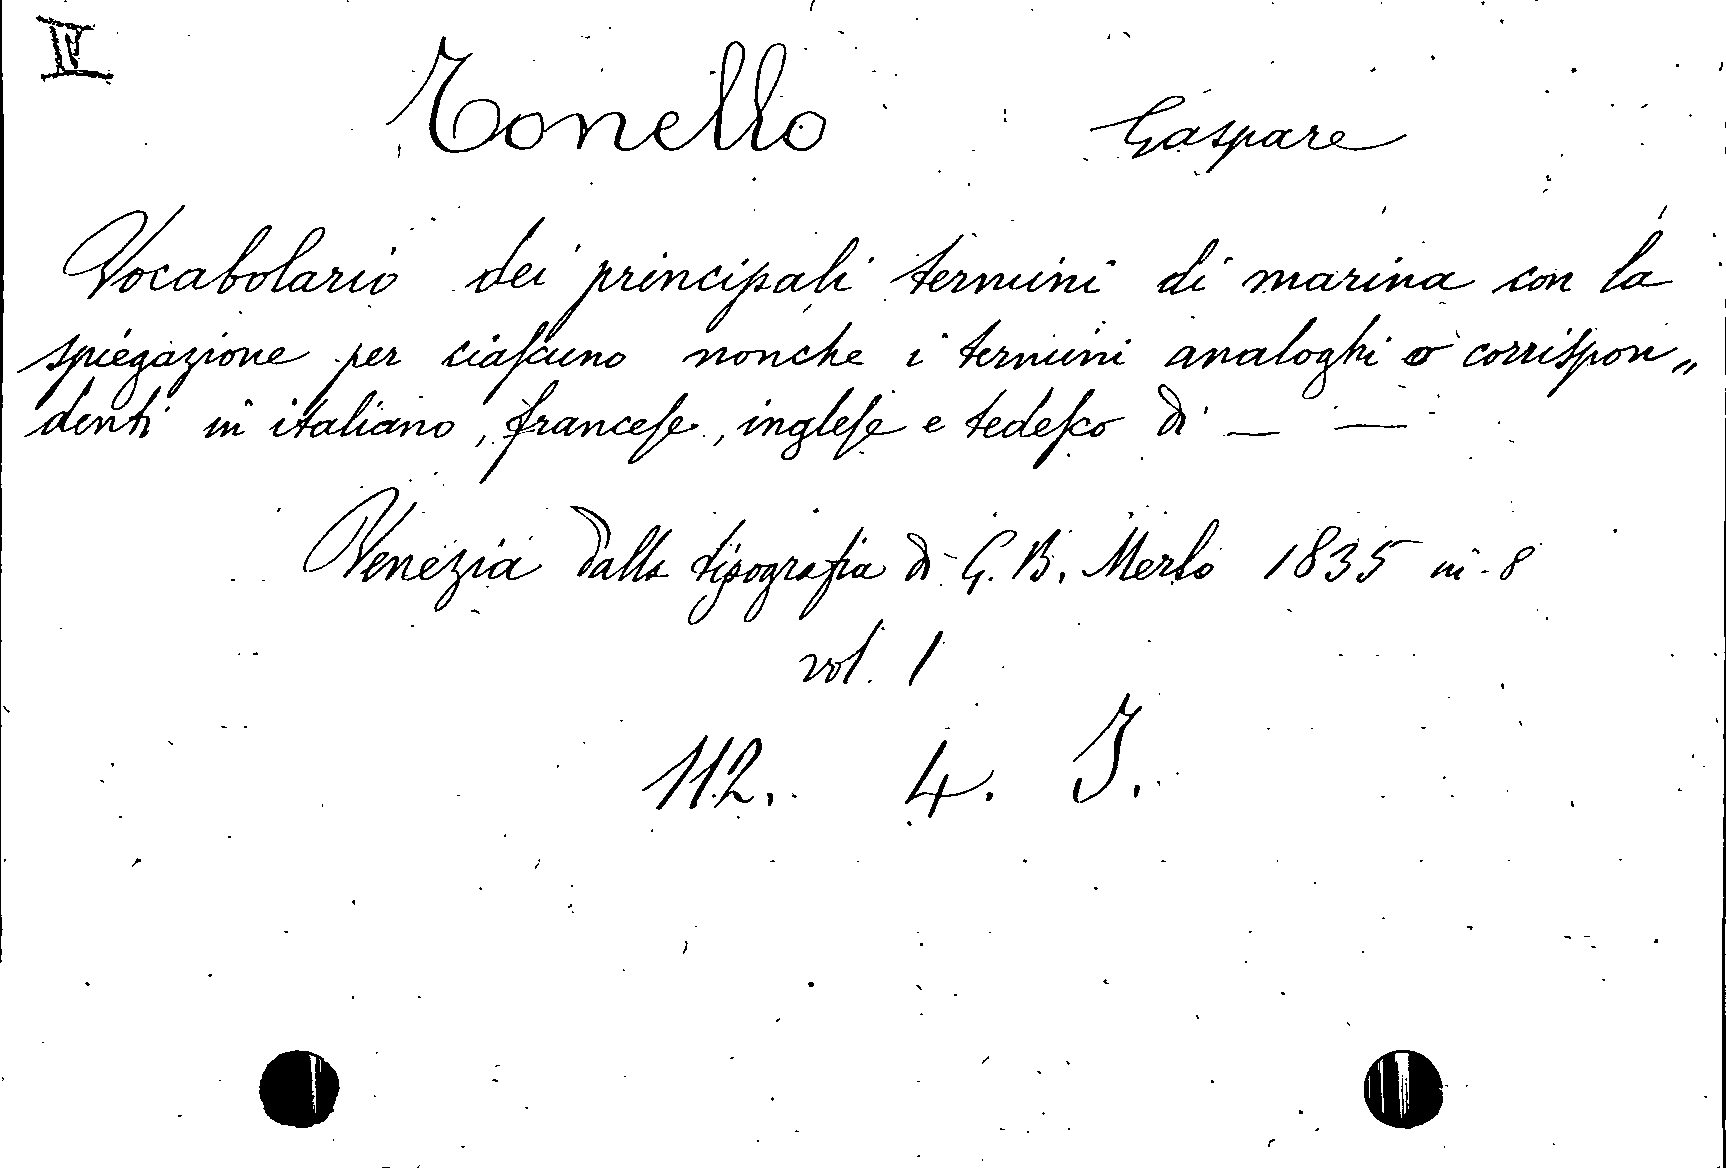 IV
Tonello Gaspare
Vocabolario dei principali termini di marina con la
spiegazione per ciaſcuno nonche i termini analoghi o corriſpon„
denti in italiano, franceſe, ingleſe e tedeſco di — —
Venezia dalla tipografia di G. B. Merlo 1835 in-8
vol. 1
112. 4. I.